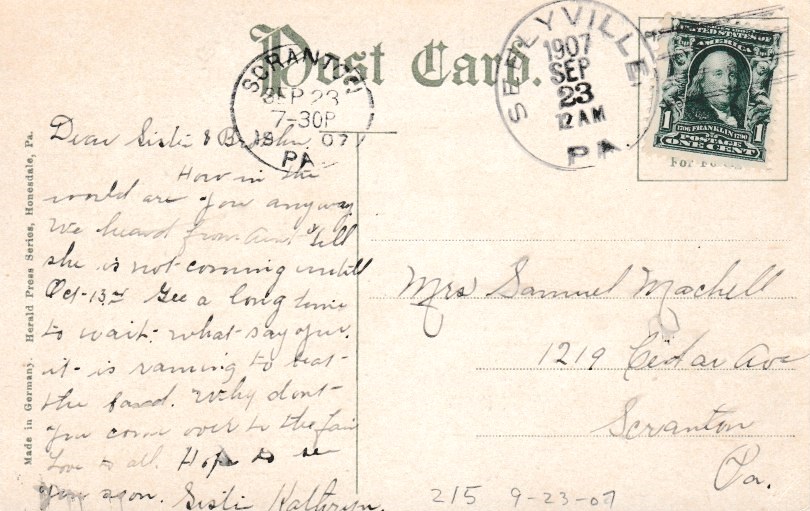 Post Card.
SCRANTON
SEP 23
7-30P
19 07
PA
SEELYVILLE
1907
SEP
23
12 AM
PA.
UNITED STATES OF
AMERICA
1 1
1706 FRANKLIN 1790
POSTAGE
ONE CENT
For
Made in Germany. Herald Press Series, Honesdale, Pa.
Dear Sister & B. John,
How in the
world are you anyway
We heard from Aunt Till
she is not coming untill
Oct-13th Gee a long time
to wait. what say you.
it is raining to beat
the band. Why dont
you come over to the fair
Love to all. Hope to see
you soon. Sister Kathryn.
Mrs Samuel Machell
1219 Cedar Ave
Scranton
Pa.
215 9-23-07